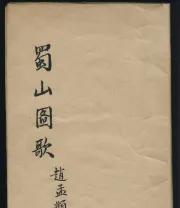 蜀山圖歌
趙孟頫